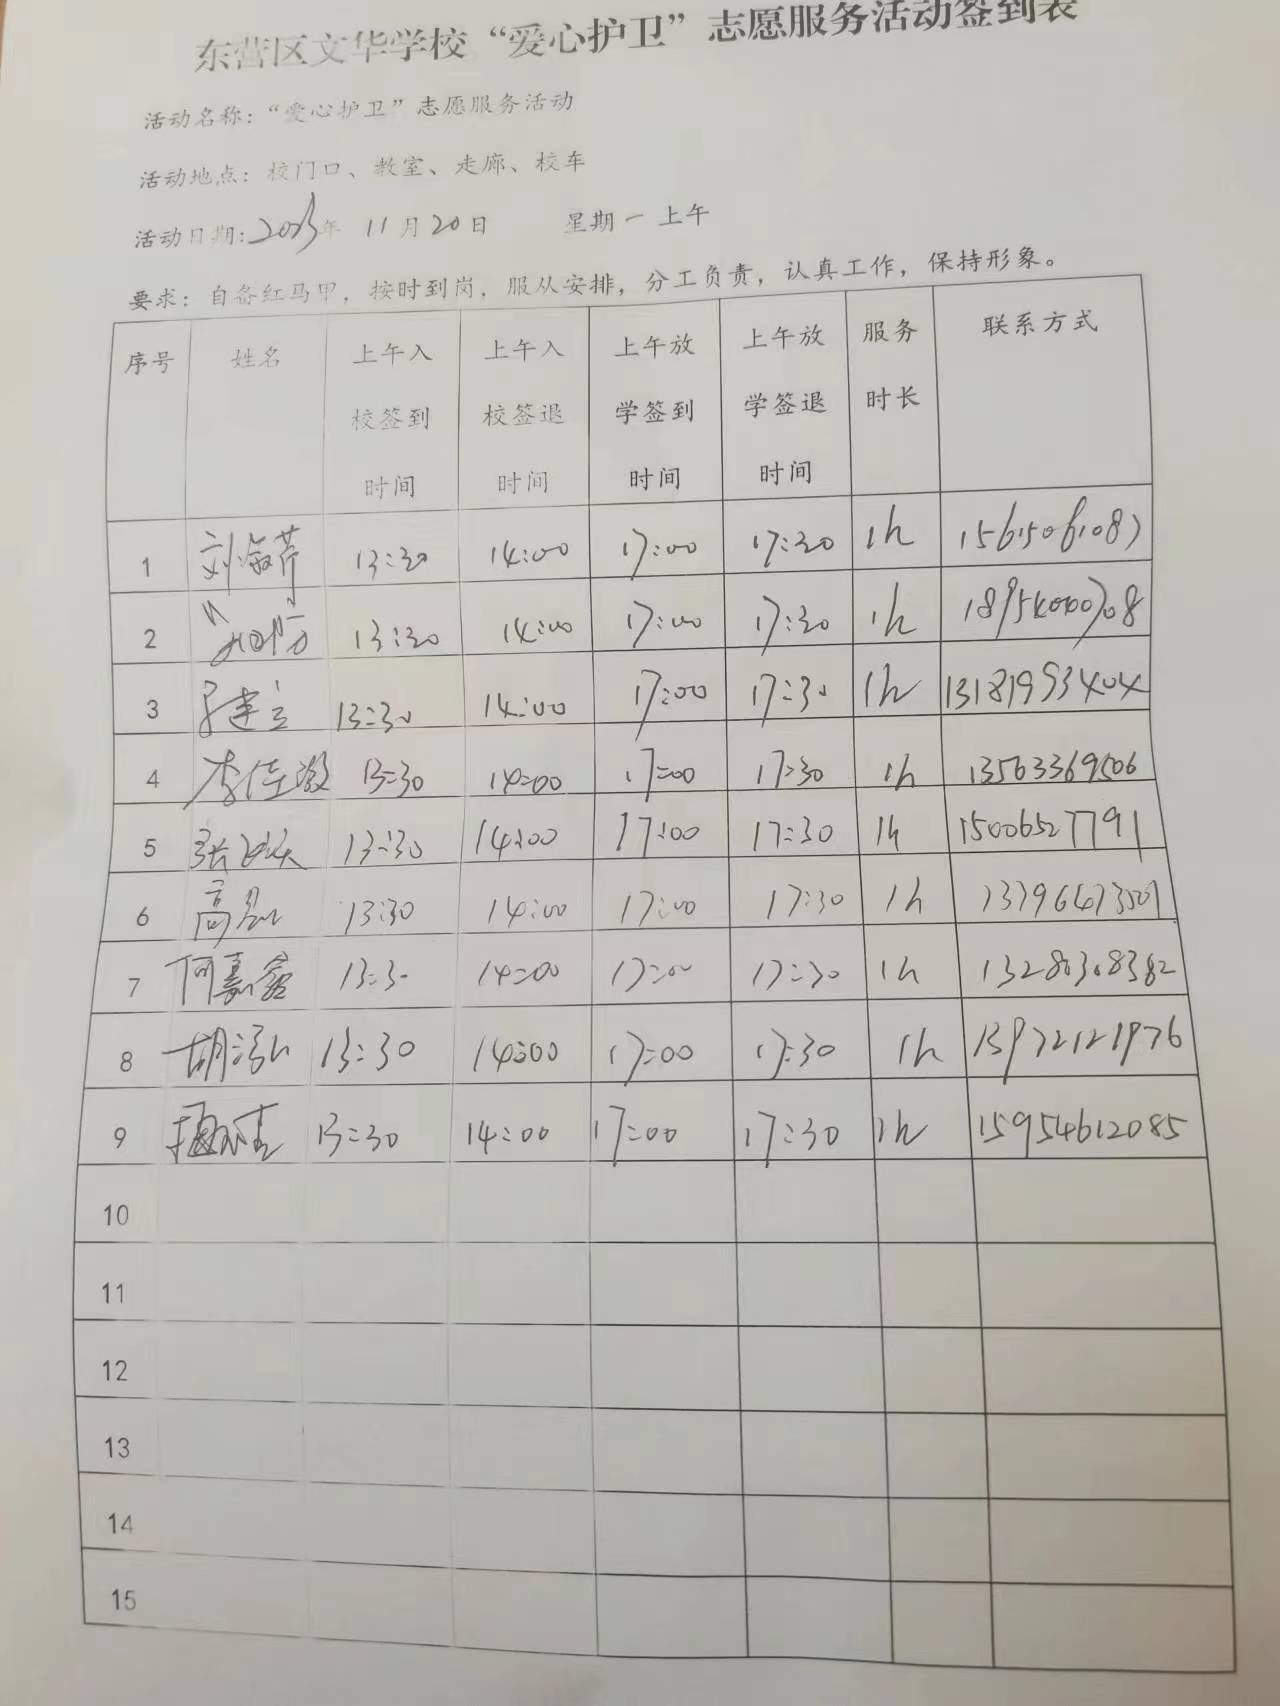 东营区文华学校“爱心护卫”志愿服务活动签到表
活动名称：“爱心护卫”志愿服务活动
活动地点：校门口、教室、走廊、校车
活动日期：2023年 11月20日 星期一 上午
要求：自备红马甲，按时到岗，服从安排，分工负责，认真工作，保持形象。
序号 姓名 上午入校签到时间 上午入校签退时间 上午放学签到时间 上午放学签退时间 服务时长 联系方式
1 刘海芹 13:30 14:00 17:00 17:30 1h 15615061087
2 13:30 14:00 17:00 17:30 1h 18954000708
3 13:30 14:00 17:00 17:30 1h 13181993404
4 李佳 13:30 14:00 17:00 17:30 1h 13563369506
5 张 13:30 14:00 17:00 17:30 1h 15006527791
6 高 13:30 14:00 17:00 17:30 1h
7 何嘉鑫 13:30 14:00 17:00 17:30 1h 13280308382
8 胡泓 13:30 14:00 17:00 17:30 1h
9 13:30 14:00 17:00 17:30 1h 15954612085
10
11
12
13
14
15